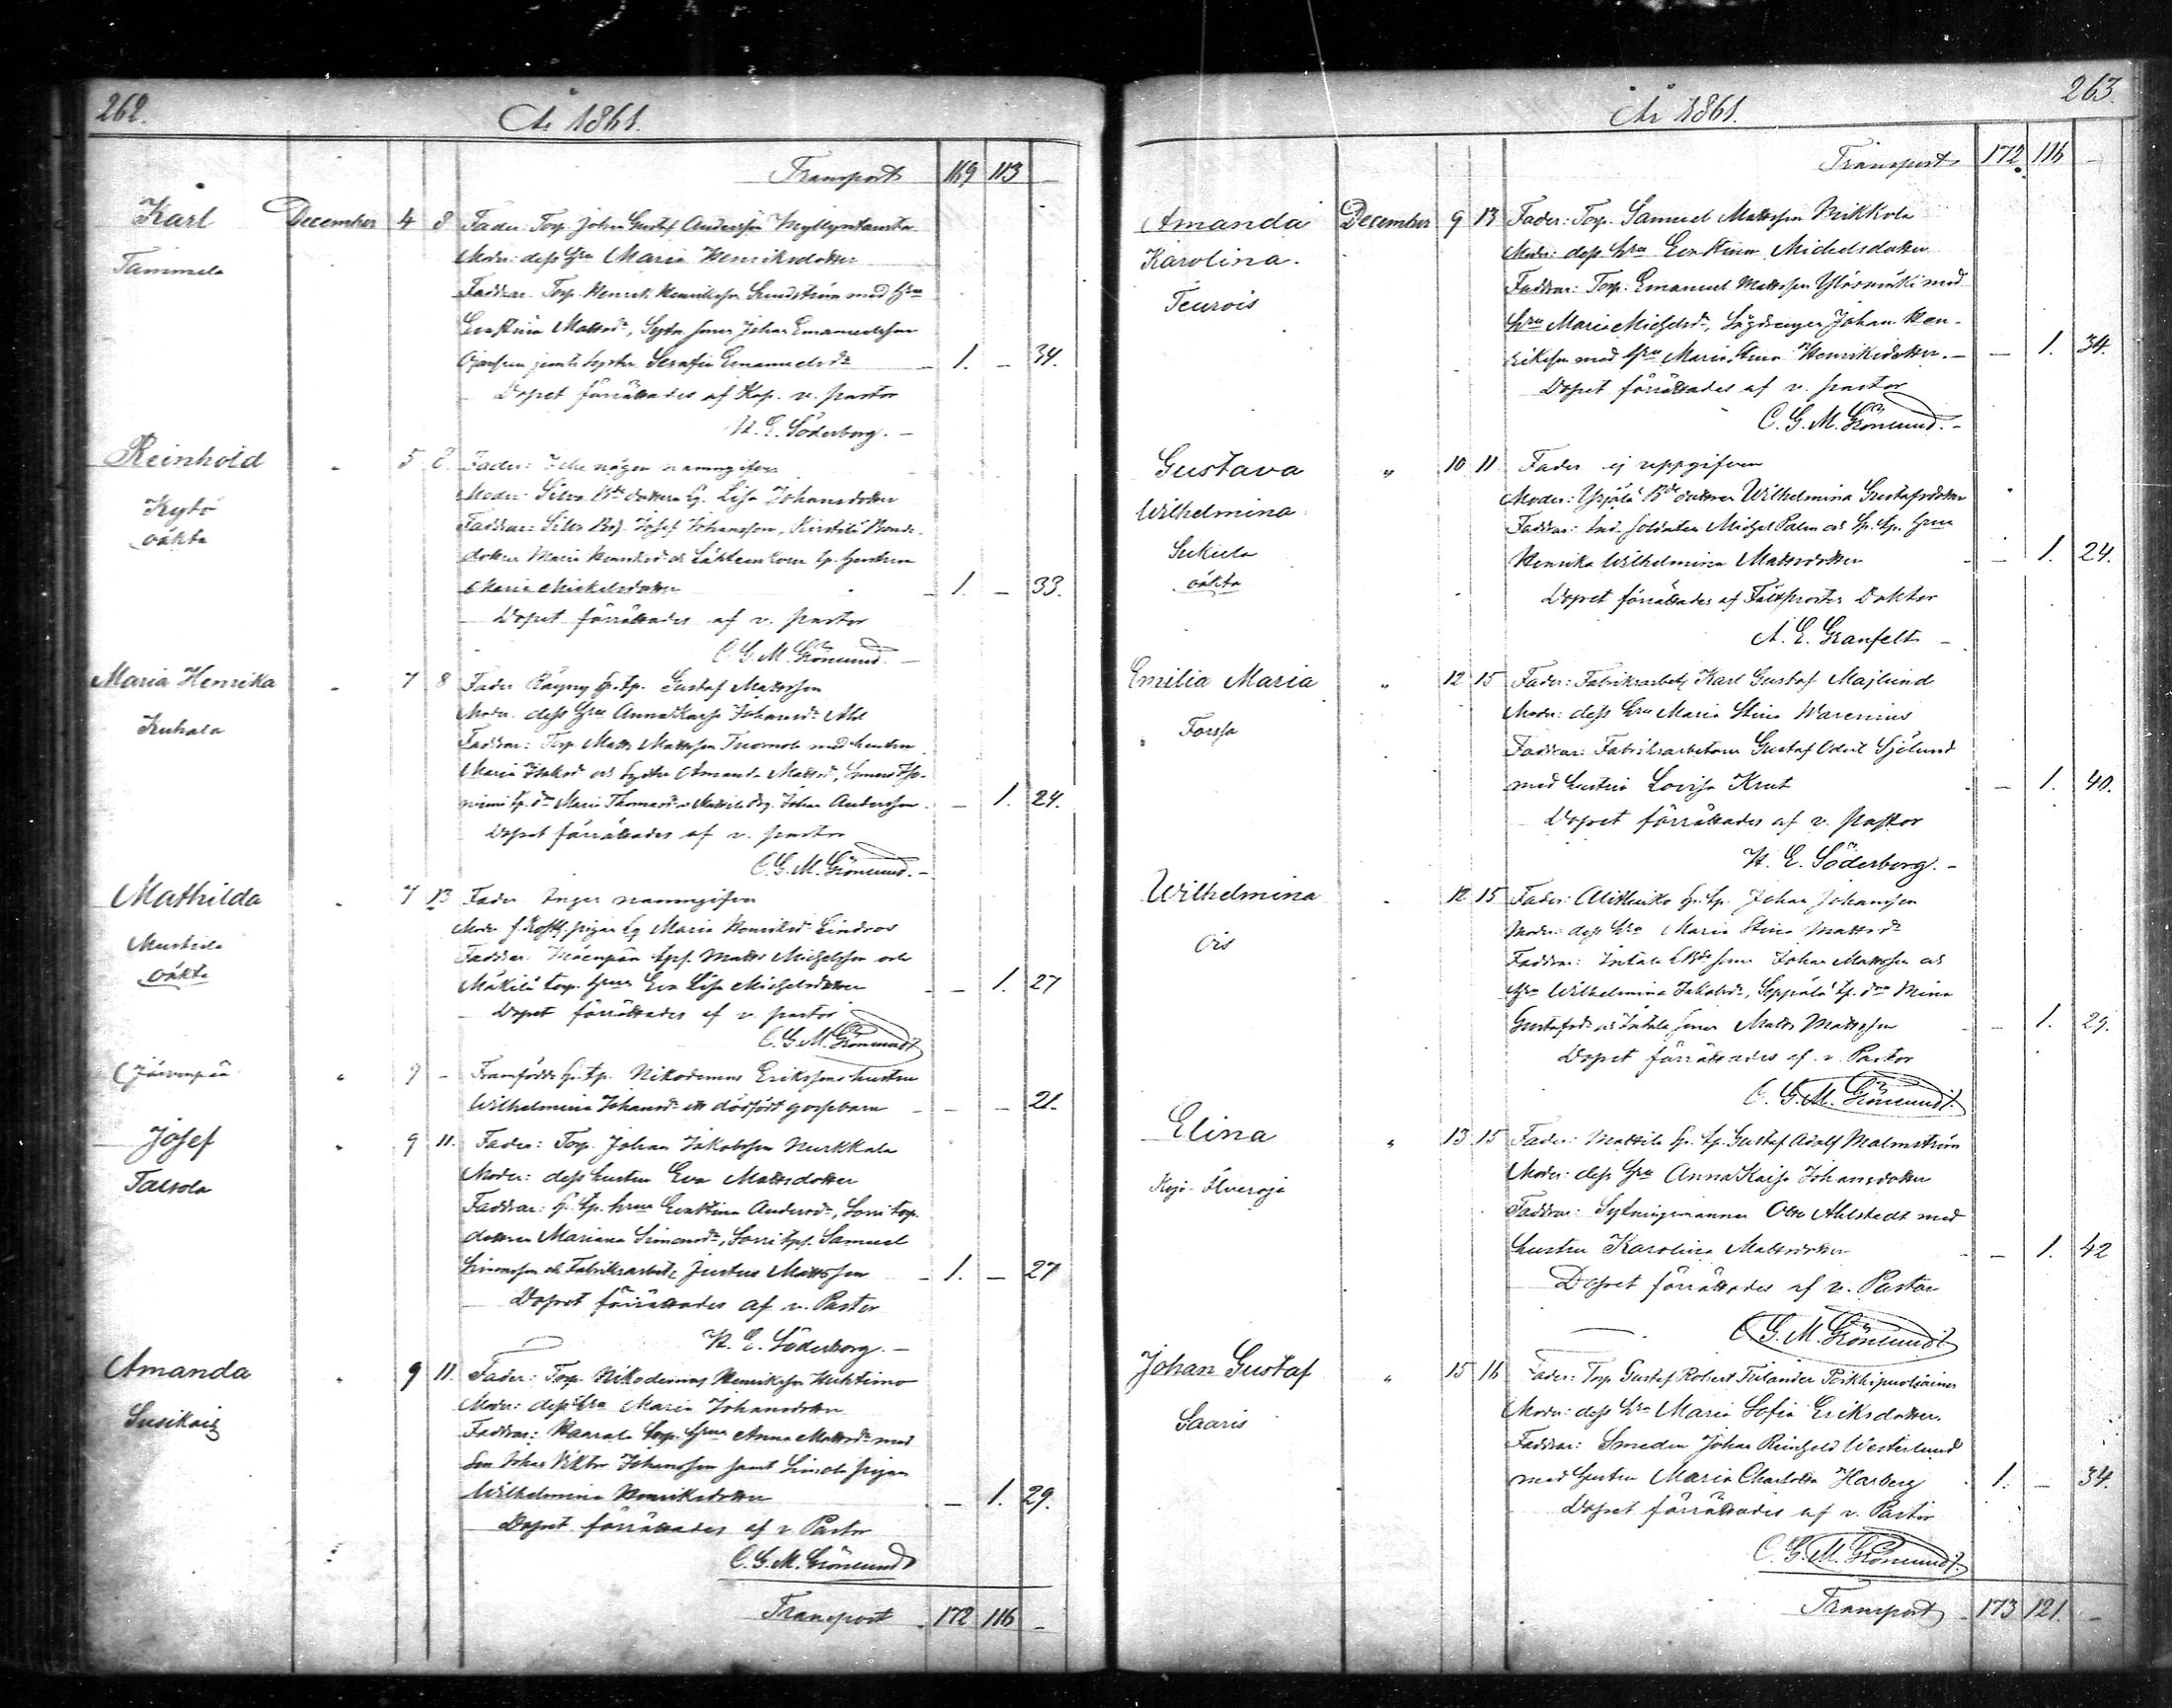 262.
År 1861.
Transport 169 113 -
Karl December 4 8 Fader: Torp. Johan Gustaf Andersson Myllynrausta
Tammela Moder: dess hru Maria Henriksdotter
Faddrar: Torp. Henrik Henriksson Sundström med hru
Eva Stina Mattsdr, Sytn. sonen Johan Emanuelsson
jemte syster Serafia Emanuelsdr - 1. - 34.
Dopet förrättades af Kap. v. pastor
H. E. Söderborg. -
Reinhold " 5 8. Fader: Icke någon namngifven
Kytö Moder: dottern Lisa Johansdotter
oäkta Faddrar: Josef Johansson, Bonde-
dottern Maria
Maria Michelsdotter - 1. - 33.
Dopet förrättades af v. pastor
C. G. M. Grönlund. -
Maria Henrika " 7 8 Fader Gustaf Mattsson
Kuhala Moder: dess hru Anna Kajsa Johansdr Ahl
Faddrar: Torp. Matts Mattsson Tuomola med hustru
Maria och syster Amanda Mattsdr,
Maria Thomasdr Johan Andersson - - 1. 24.
Dopet förrättades af v. pastor
C. G. M. Grönlund. -
Mathilda " 7 13 Fader Ingen namngifven
Mustiala Moder Maria Henriksdr Lindroos
oäkta Faddrar: Matts Michelsson och
Mäkilä torp. hrun Eva Lisa Michelsdotter - - 1. 27
Dopet förrättades af v. pastor
C. G. M. Grönlund
Järvenpää " 9 - Framfödde Nikodemus Erikssons hustru
Wilhelmina Johansdr ett dödfödt gossebarn - - - 21.
Josef " 9 11. Fader: Torp. Johan Jakobsson Nurkkala
Talsola Moder: dess hustru Eva Mattsdotter
Faddrar: hrun Eva Stina Andersdr, Sorri torp.
dottren Mariana Simonsdr, Sorri Samuel
Simonsson och Fabriksarbet. Justus Mattsson - 1. - 27
Dopet förrättades af v. Pastor
H. E. Söderborg. -
Amanda " 9 11. Fader: Torp. Nikodemus Henriksson Huhtimo
Susikais Moder: dess hru Maria Johansdotter
Faddrar: torp. hrun Anna Mattsdr med
Son Johan Viktor Johansson samt pigan
Wilhelmina Henriksdotter - 1. 29.
Dopet förrättades af v Pastor
C. G. M. Grönlund
Transport 172 116 -
263.
År 1861.
Transport 172. 116 -
Amanda December 9 13 Fader: Torp. Samuel Mattsson Nikkola
Karolina. Moder: dess hru Eva Stina Michelsdotter
Teurois Faddrar: Torp. Emanuel Mattsson med
hru Maria Johan Hen-
riksson med hru Maria Stina Henriksdotter. - - 1. 34.
Dopet förrättades af v. pastor
C. G. M. Grönlund. -
Gustava " 10 11 Fader ej uppgifven
Wilhelmina Moder: Yrjälä dottren Wilhelmina Gustafsdotter
Sukula Faddrar: soldaten Michel Palm och hrun
oäkta Henrika Wilhelmina Mattsdotter - - 1. 24.
Dopet förrättades af Fältprosten Doktor
A. E. Granfelt -
Emilia Maria " 12 15 Fader: Fabriksarbet. Karl Gustaf Majlund
Forssa Moder: dess hru Maria Stina Warenius
Faddrar: Fabriksarbetaren Gustaf Sjölund
med hustru Lovisa Krut - 1. 40.
Dopet förrättades af v. Pastor
H. E. Söderborg. -
Wilhelmina " 12 15 Fader: Johan Johansson
Ois Moder: dess hru Maria Stina Mattsdr
Faddrar: Intala sonen Johan Mattsson och
hru Wilhelmina Jakobsdr, Seppälä Mina
Gustafsdr och Intala sonen Matts Mattsson - - 1. 29.
Dopet förrättades af v. Pastor
C. G. M. Grönlund.
Elina " 13 15 Fader: Mattila Gustaf Adolf Malmström
Kojo- Moder: dess hru Anna Kaisa Johansdotter
Faddrar: Sytningsmannen Otto Ahlstedt med
hustru Karolina Mattsdotter - - 1. 42
Dopet förrättades af v. Pastor
C. G. M. Grönlund.
Johan Gustaf " 15 16 Fader: Torp. Gustaf Robert Frilander
Saaris Moder: dess hru Maria Sofia Eriksdotter.
Faddrar: Smeden Johan Reinhold Westerlund
med hustru Maria Charlotta Harberg 1. - 34.
Dopet förrättades af v. Pastor
C. G. M. Grönlund.
Transport 173 121. -